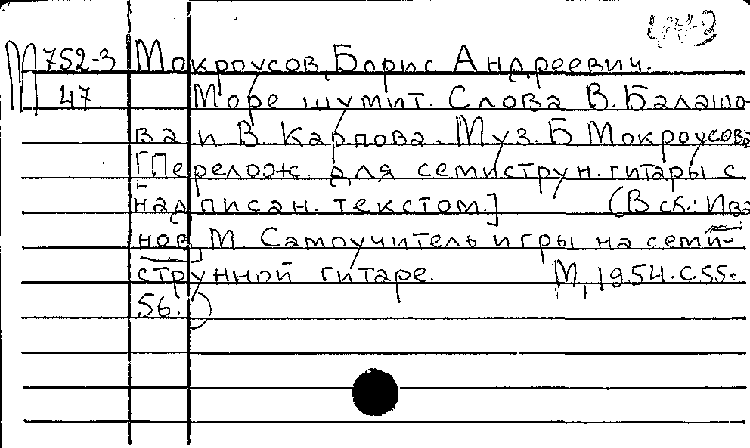 М 752-3 Мокроусов, Борис Андреевич.
47 Море шумит. Слова В. Балашо-
ва и В. Карпова. Муз. Б Мокроусова
[Перелож. для семиструн. гитары с
надписан. текстом.] (В сб.: Ива
нов, М. Самоучитель игры на семи-
струнной гитаре. М., 1954. с. 55-
56.)